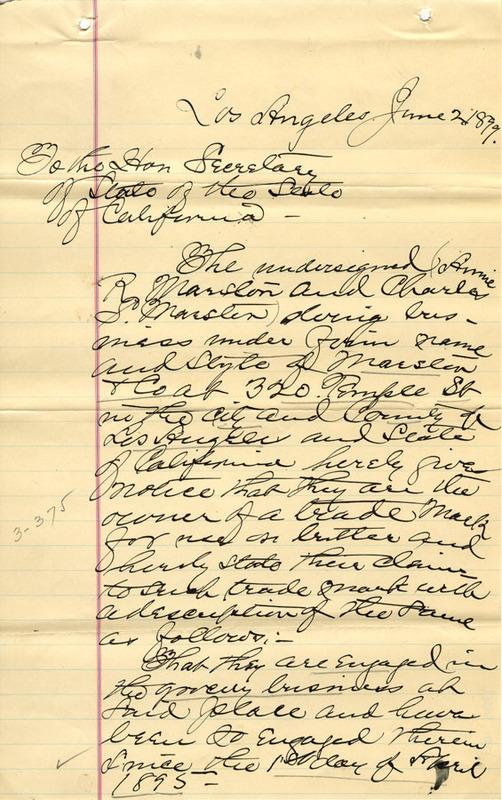 Los Angeles, June 2, 1899.
To the Hon Secretary
of State of the State
of California —
The undersigned (Annie
R. Marston and Charles
S. Marston) doing bus-
iness under firm name
and style of Marston
& Co at 320. Temple St
in the City and County of
Los Angeles and State
of California hereby give
notice that they are the
owner of a trade mark
for use on butter and
hereby state their claim
to such trade mark with
a description of the same
as follows:—
3-375
That they are engaged in
the grocery business at
said place and have
been so engaged therein
since the 1st day of April
1895—